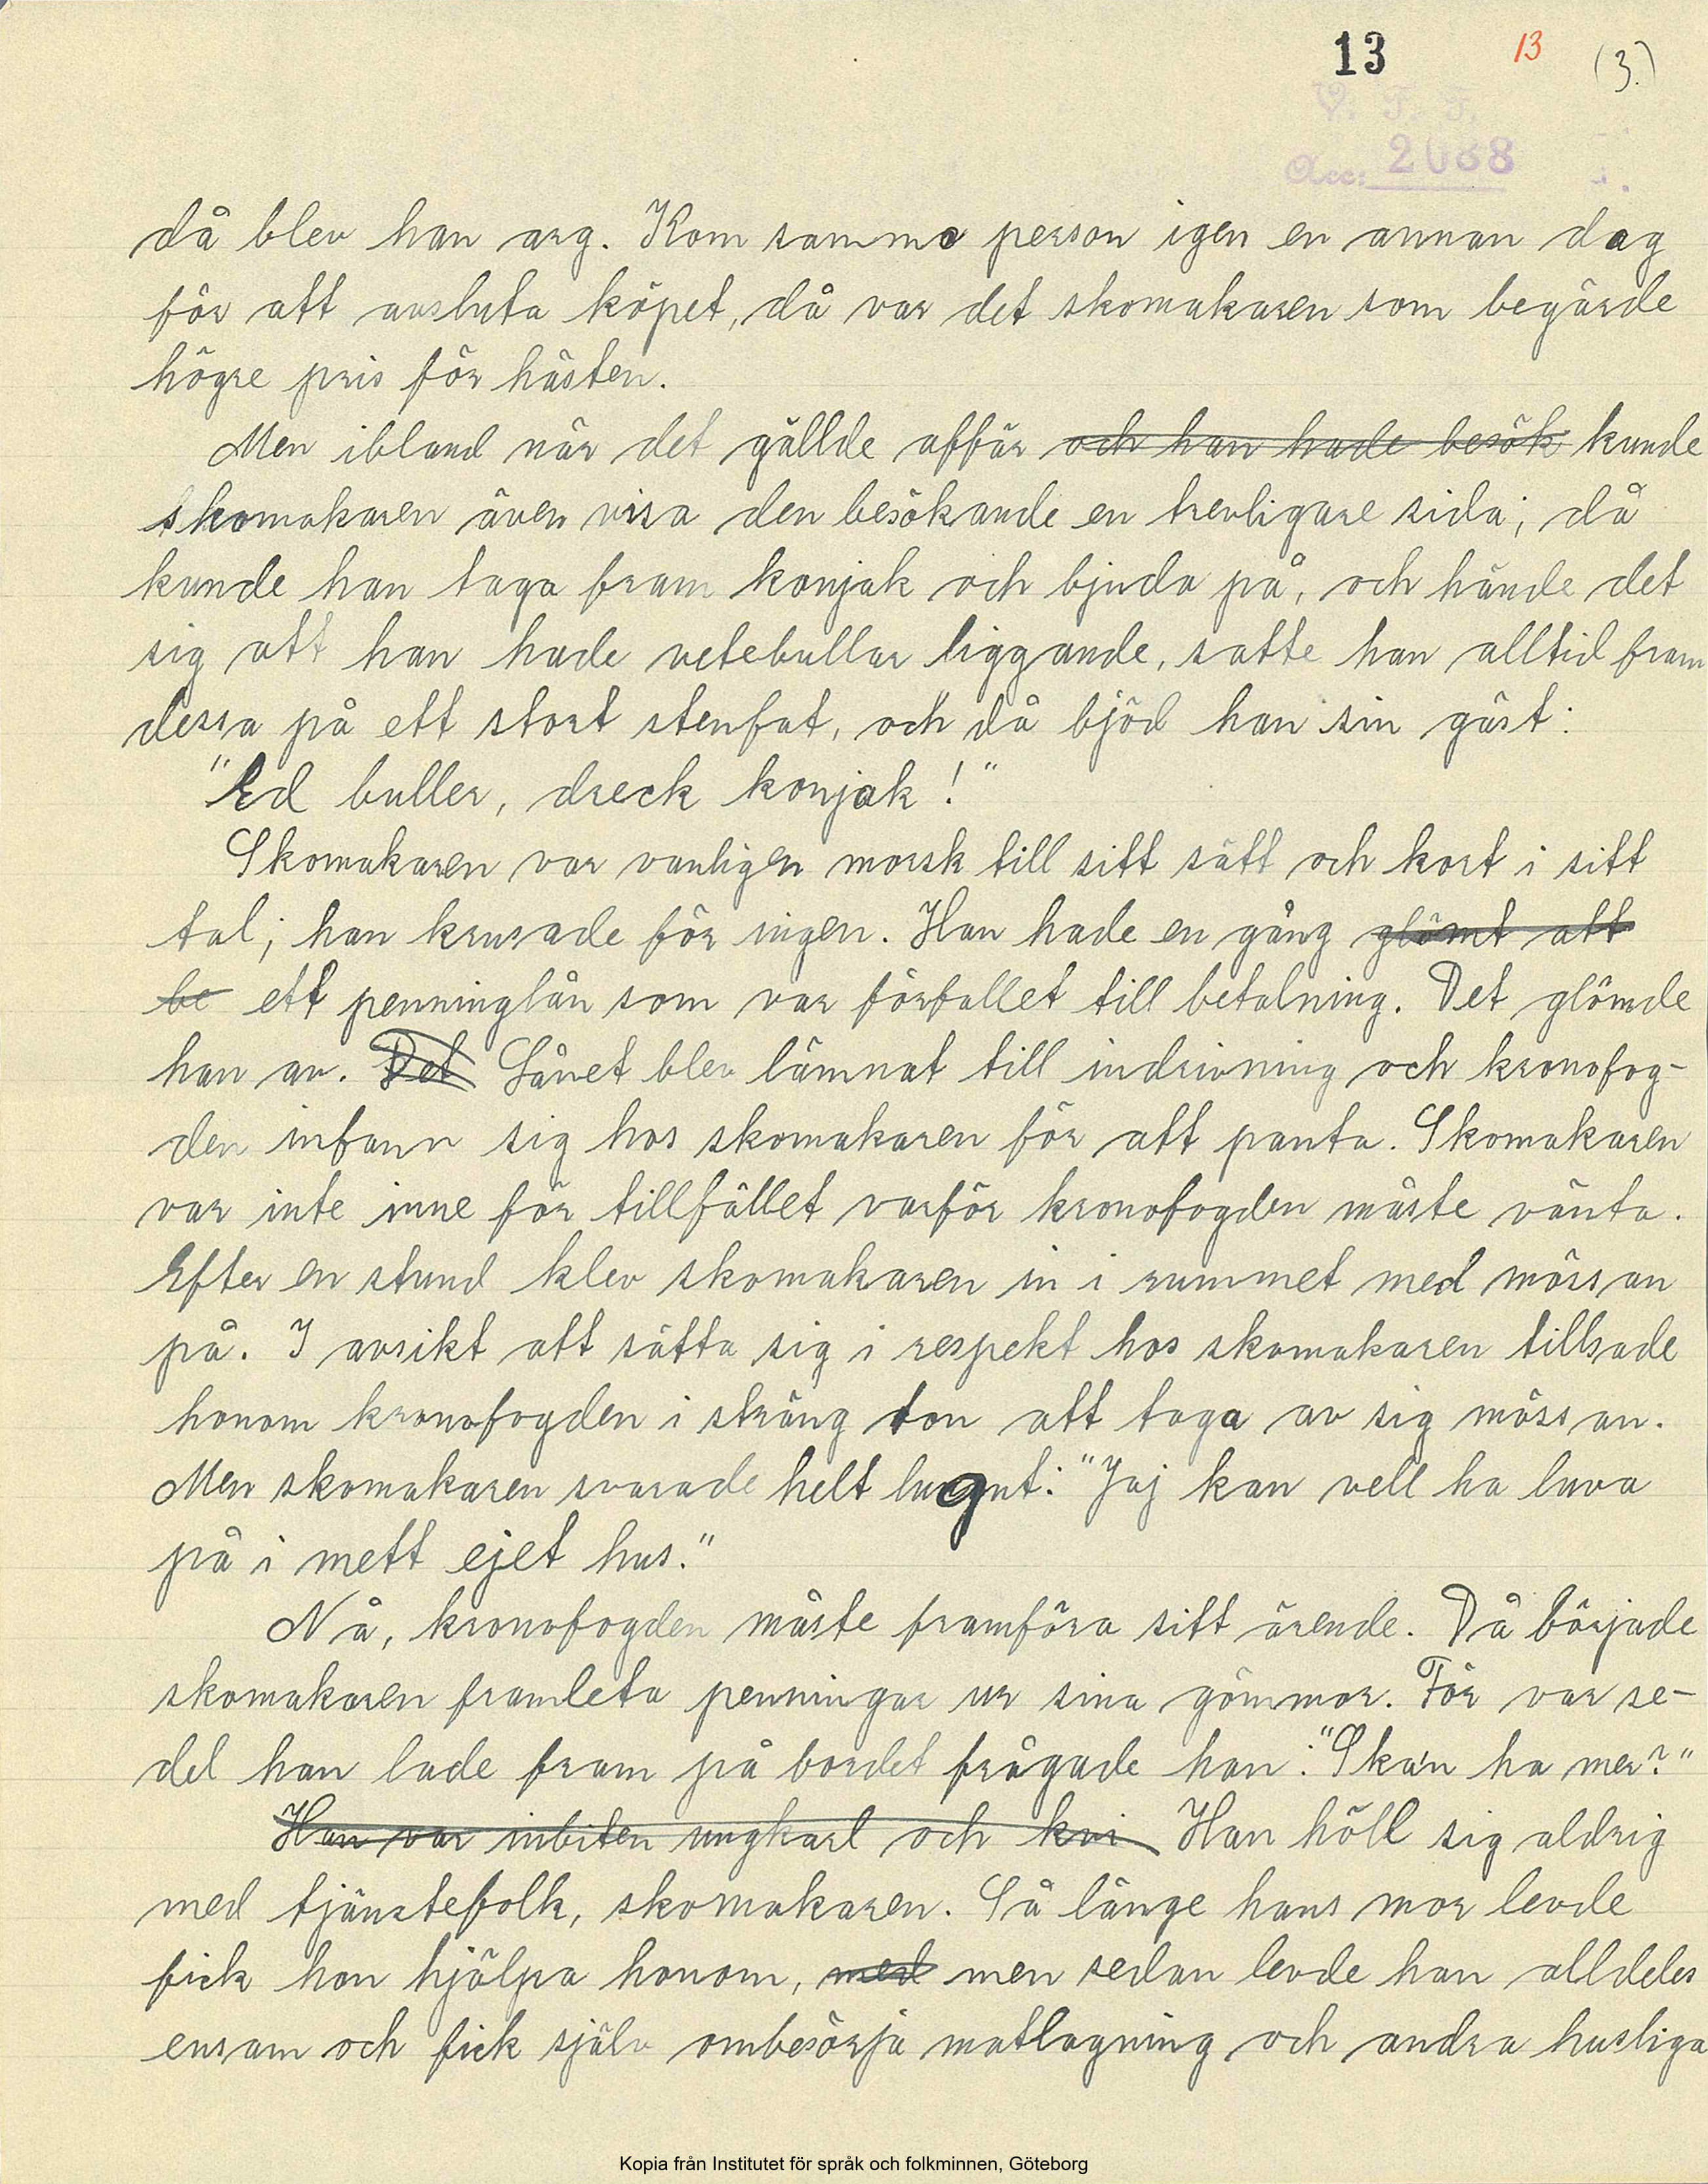 13 13 (3.)
V. F. F.
Acc: 2088
då blev han arg. Kom samma person igen en annan dag
för att avsluta köpet, då var det skomakaren som begärde
högre pris för hästen.
Men ibland när det gällde affär och han hade besök kunde
skomakaren även visa den besökande en trevligare sida; då
kunde han taga fram konjak och bjuda på, och hände det
sig att han hade vetebullar liggande, satte han alltid fram
dessa på ett stort stenfat, och då bjöd han sin gäst:
"Ed buller, dreck konjak!"
Skomakaren var vanligen morsk till sitt sätt och kort i sitt
tal; han krusade för ingen. Han hade en gång glömt att
be ett penninglån som var förfallet till betalning. Det glömde
han av. Det Lånet blev lämnat till indrivning och kronofog-
den infann sig hos skomakaren för att panta. Skomakaren
var inte inne för tillfället varför kronofogden måste vänta.
Efter en stund klev skomakaren in i rummet med mössan
på. I avsikt att sätta sig i respekt hos skomakaren tillsade
honom kronofogden i sträng ton att taga av sig mössan.
Men skomakaren svarade helt lugnt: "Jaj kan vell ha luva
på i mett ejet hus."
Nå, kronofogden måste framföra sitt ärende. Då började
skomakaren framleta penningar ur sina gömmor. För var se-
del han lade fram på bordet frågade han: "Ska'n ha mer?"
Han var inbiten ungkarl och kvi Han höll sig aldrig
med tjänstefolk, skomakaren. Så länge hans mor levde
fick hon hjälpa honom, med men sedan levde han alldeles
ensam och fick själv ombesörja matlagning och andra husliga
Kopia från Institutet för språk och folkminnen, Göteborg